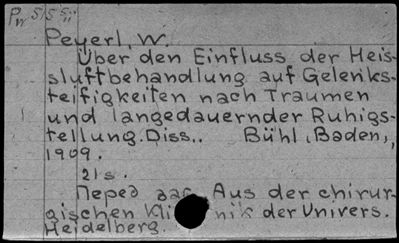 Pw 515
Peyerl, W.
Über den Einfluss der Heis-
sluftbehandlung auf Gelenks-
teifigkeiten nach Traumen
und langedauernder Ruhigs-
tellung. Diss.. Bühl, Baden,,
1909.
21s.
Перед заг. Aus der chirur-
gischen Klinik der Univers.
Heidelberg.